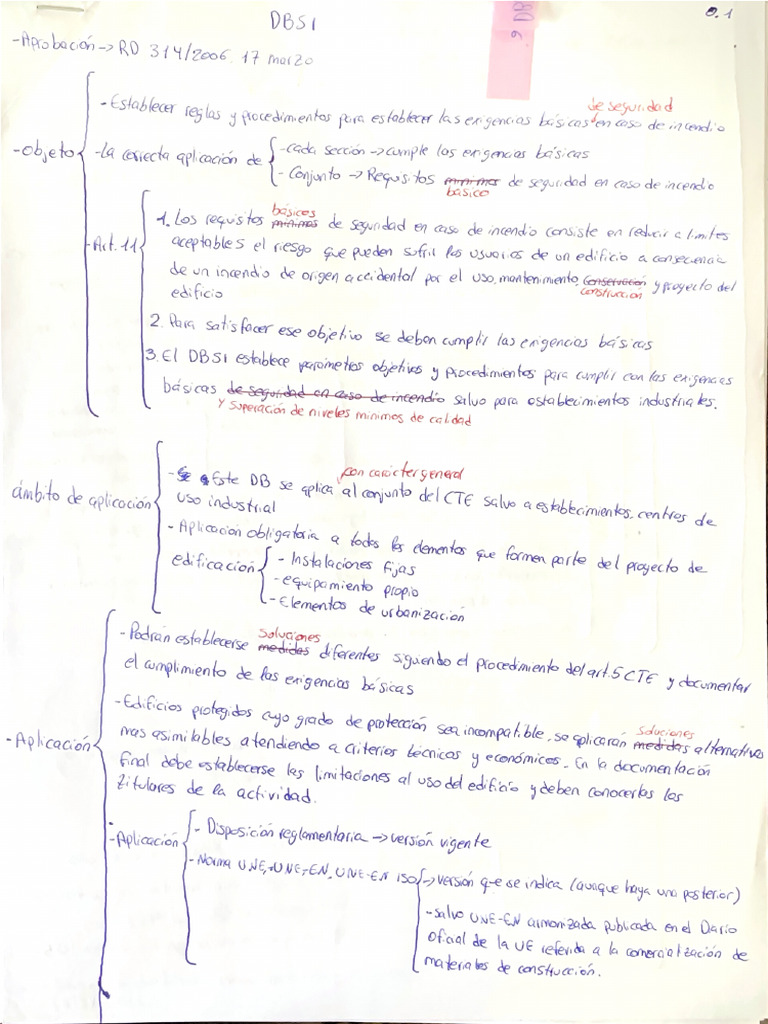 DBSI
0.1
9 DB
-Aprobación→RD 314/2006. 17 marzo
de seguridad
-Establecer reglas y procedimientos para establecer las exigencias básicas en caso de incendio
-Objeto
-La correcta aplicación de
-cada sección→cumple las exigencias básicas
-Conjunto→Requisitos minimos de seguridad en caso de incendio
básico
-Art.11
básicos
1. Los requisitos minimos de seguridad en caso de incendio consiste en reducir a limites
aceptables el riesgo que pueden sufrir los usuarios de un edificio a consecuencia
de un incendio de origen accidental por el uso, mantenimiento, conservación y proyecto del
construccion
edificio
2. Para satisfacer ese objetivo se deben cumplir las exigencias básicas
3. El DBSI establece parámetros objetivos y procedimientos para cumplir con las exigencias
básicas de seguridad en caso de incendio salvo para establecimientos industriales.
y superación de niveles minimos de calidad
con carácter general
-Este DB se aplica al conjunto del CTE salvo a establecimientos, centros de
ámbito de aplicación
uso industrial
-Aplicación obligatoria a todos los elementos que formen parte del proyecto de
edificación
-Instalaciones fijas
-equipamiento propio
-Elementos de urbanización
soluciones
-Podrán establecerse medidas diferentes siguiendo el procedimiento del art.5 CTE y documentar
el cumplimiento de las exigencias básicas
-Edificios protegidos cuyo grado de protección sea incompatible, se aplicarán medidas alternativas
soluciones
-Aplicación
mas asimilables atendiendo a criterios técnicos y económicos. En la documentación
final debe establecerse las limitaciones al uso del edificio y deben conocerlas los
titulares de la actividad.
-Aplicación
-Disposición reglamentaria→versión vigente
-Norma UNE, UNE-EN, UNE-EN ISO
→versión que se indica (aunque haya una posterior)
-salvo UNE-EN armonizada publicada en el Dario
oficial de la UE referida a la comercialización de
materiales de construcción.